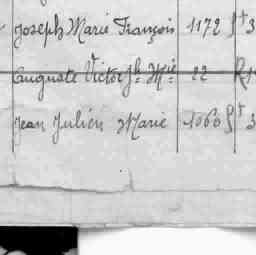 Joseph Marie François 1172 § † 3
Auguste Victor Jh. Mie 22 R 1
Jean Julien Marie 1060 § † 3